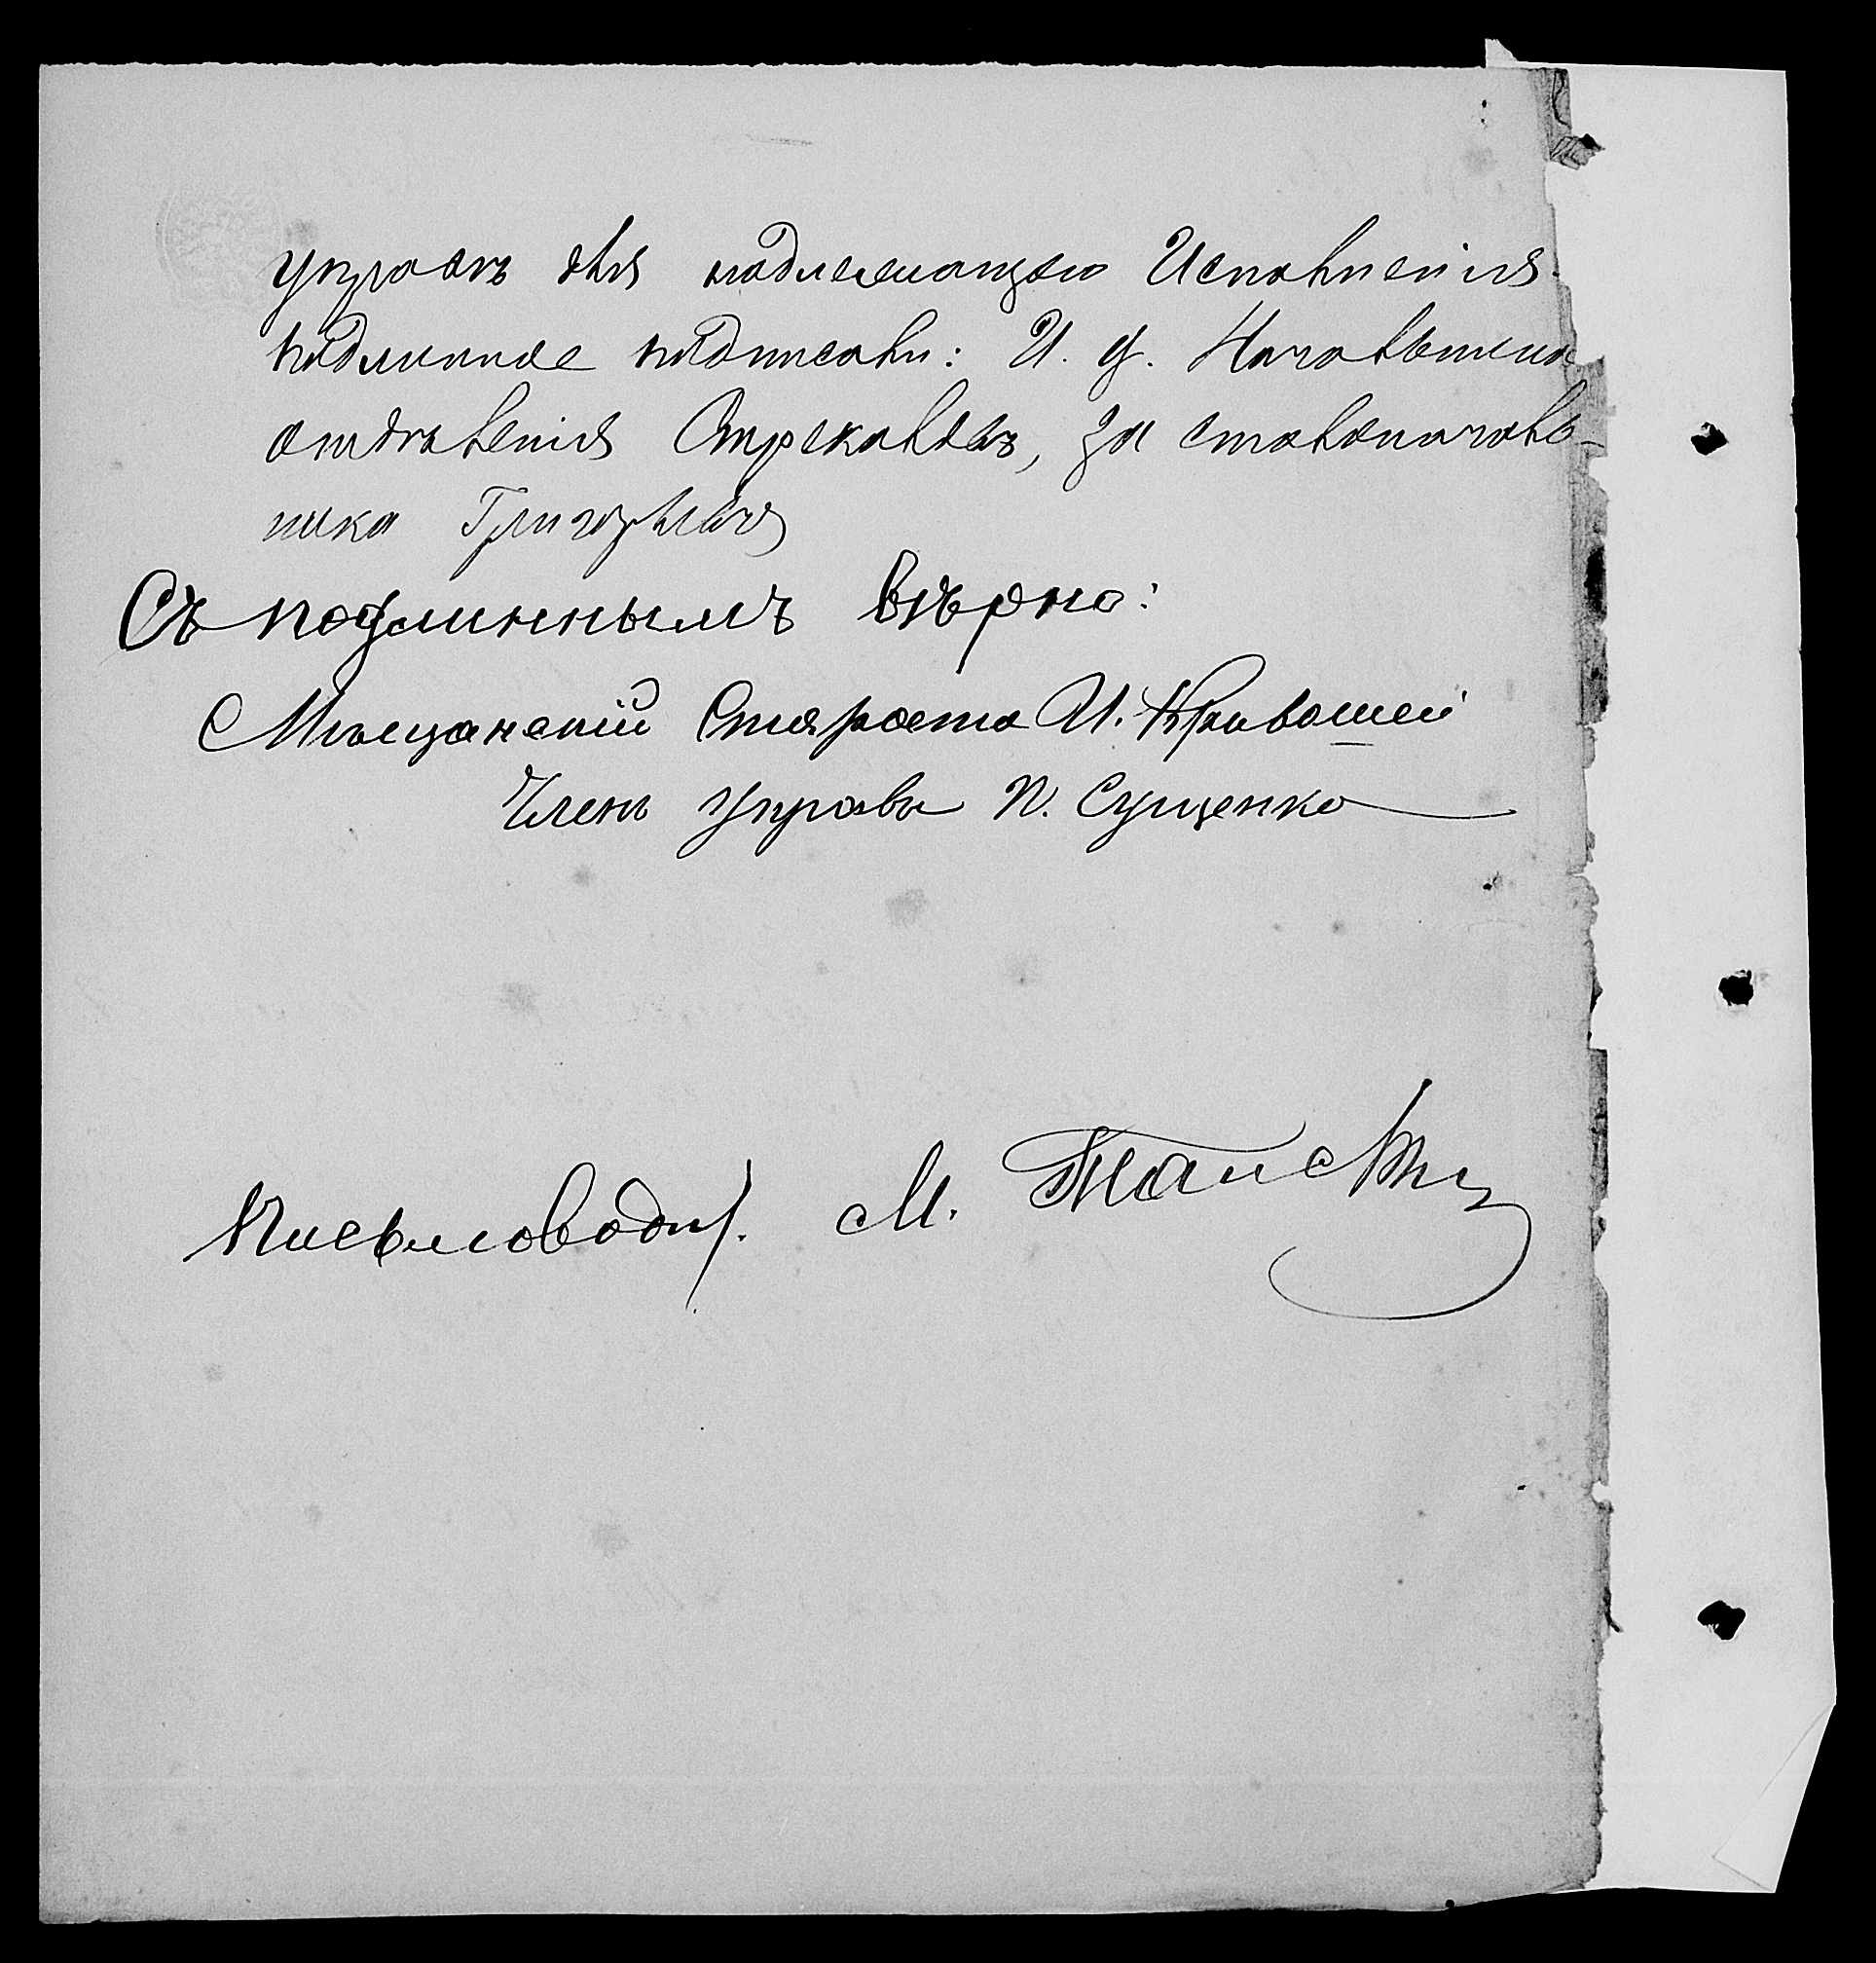 управѣ для надлежащаго Исполненія.
подлинное подписали: И. д. Начальника
отдѣленія Стрекаловъ, за столоначаль-
ника Григорьевъ
Съ подлиннымъ вѣрно:
Мѣщанскій Староста И. Кривошей
Членъ управы П. Сущенко
Письмовод. М.